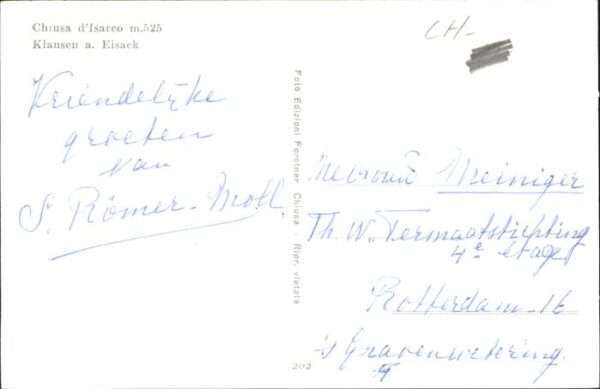 Chiusa d'Isarco m.525
Klausen a. Eisack
CH-
Vriendelijke
groeten
van
S. Römer-Moll.
Foto Edizioni Forstner Chiusa. Ripr. vietata
202
Mevrouw Meiniger
Th. W. Termaatstichting
4e etage
Rotterdam-16
's Gravenwetering